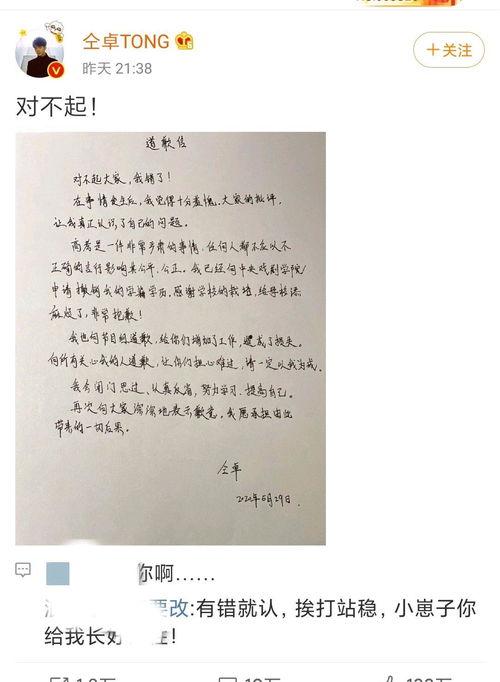 仝卓TONG
昨天 21:38
+关注
对不起！
道歉信
对不起大家，我错了！
在事情发生后，我觉得十分羞愧。大家的批评，
让我真正认识了自己的问题。
高考是一件非常严肃的事情，任何人都不应以不
正确的言行影响其公平、公正。我已经向中央戏剧学院
申请撤销我的学籍学历。感谢学校的栽培，给母校添
麻烦了，非常抱歉！
我也向节目组道歉，给你们增加了工作，造成了损失。
向所有关心我的人道歉，让你们担心难过，请一定以我为戒。
我会闭门思过、认真反省，努力学习、提高自己。
再次向大家深深地表示歉意。我愿承担由此
带来的一切后果。
仝卓
2020年5月29日
你啊……
要改:有错就认，挨打站稳，小崽子你
给我长
！